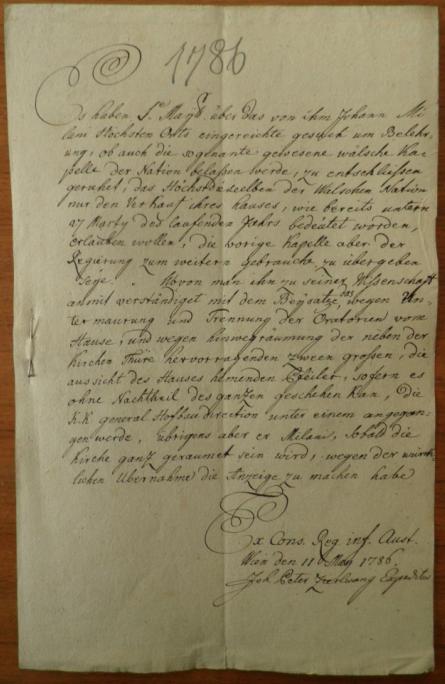 1786
Es haben Se Mayst. über das von ihm Johann Mi
lani höchsten Orts eingereichte gesuch um Belehr
ung, ob auch die sogenante gewesene wälsche Ka-
pelle der Nation belassen werde, zu entschliessen
geruhet, das Höchstdieselben der Wälschen Nation
nur den Verkauf ihres hauses, wie bereits unterm
27 Marty des laufenden Jahrs bedeutet worden,
erlauben wollen, die vorige Kapelle aber der
Regierung zum weitern gebrauche zu übergeben
seye. Wovon man ihn zu seiner Wissenschaft
anmit verständiget mit dem Beysatze, das wegen
termaurung und Trennung der Oratorien vom
Hause, und wegen hinwegräumung der neben der
Kirchen Thüre hervorragenden zween grossen, die
aussicht des Hauses hemenden Pfeiler, sofern es
ohne Nachtheil des ganzen geschehen kan, die
K.K. general Hofbaudirection unter einem angegan-
gen werde, übrigens aber er Melani, sobald die
Kirche ganz geraumet sein wird, wegen der würk-
lichen Übernahme die Anzeige zu machen habe
Ex Cons. Reg. inf. Aust.
Wien den 11 May 1786.
Joh. Peter Expeditor